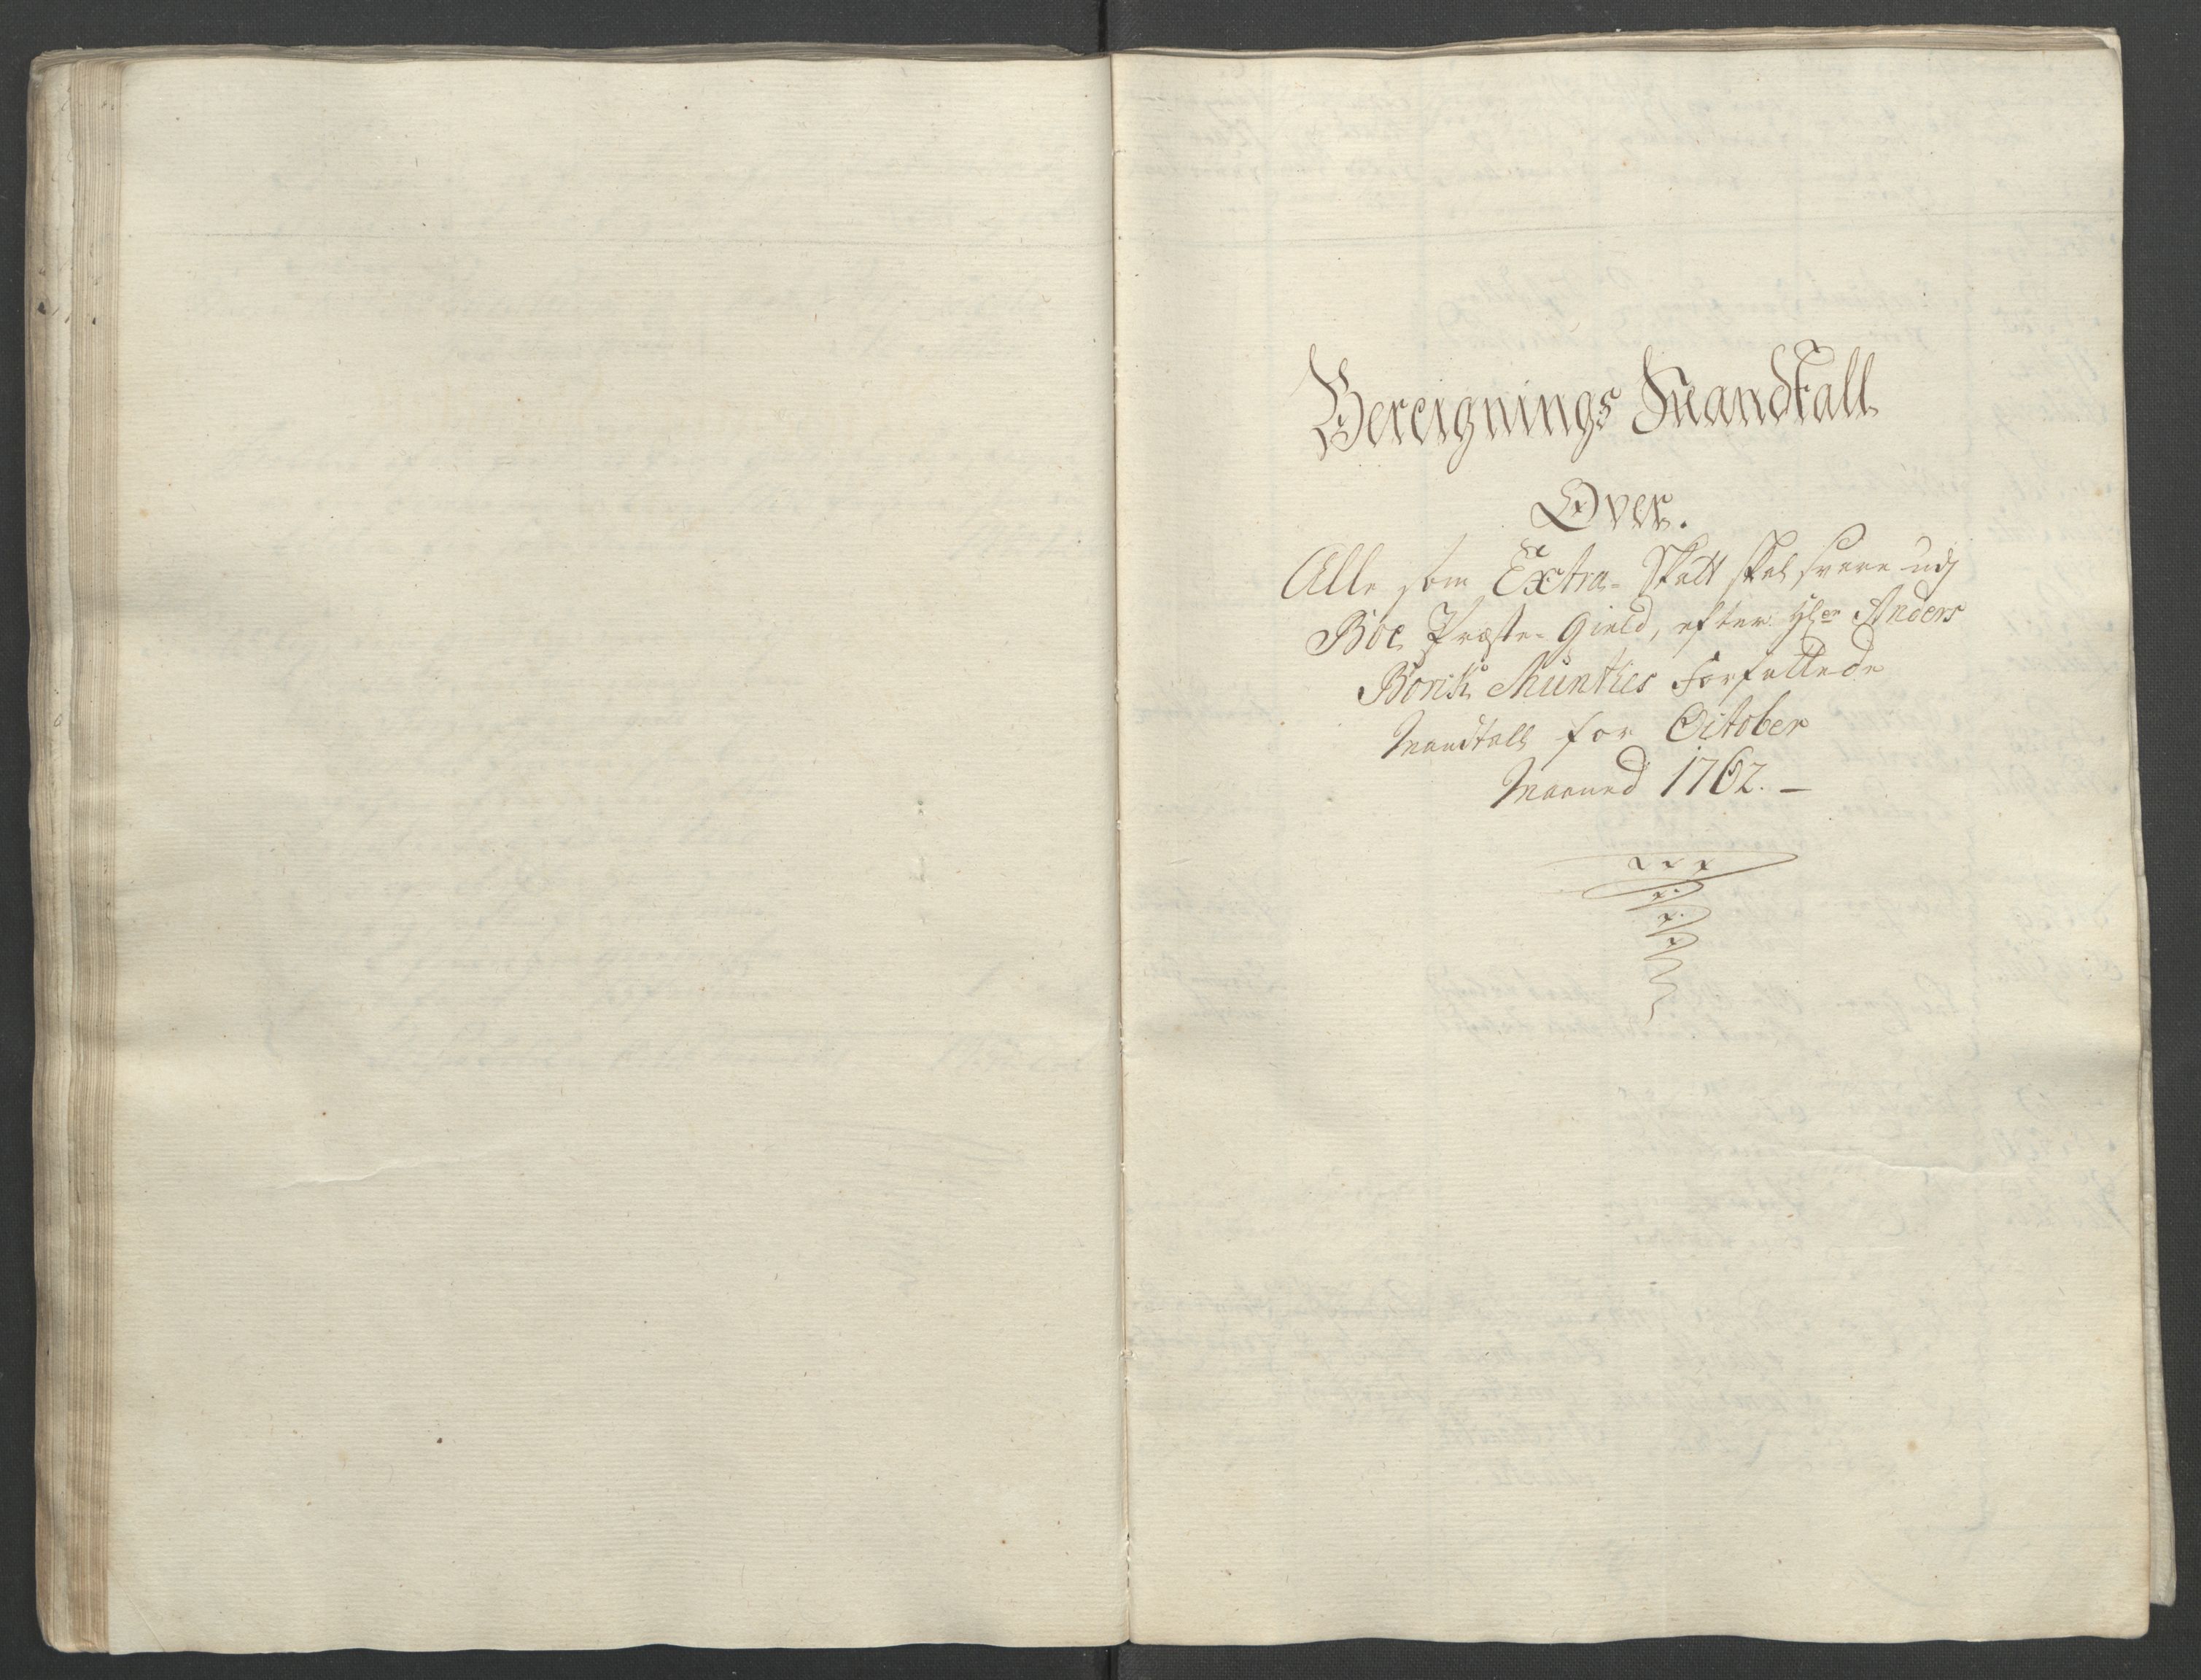 Bereignings Mandtall
Over.
Alle som Extra-Skatt skal svare udj
Böe Præste-Gield, efter Hr. Anders
Borch Munthes Forfattede
Mandtall for October
Maaned 1762. —